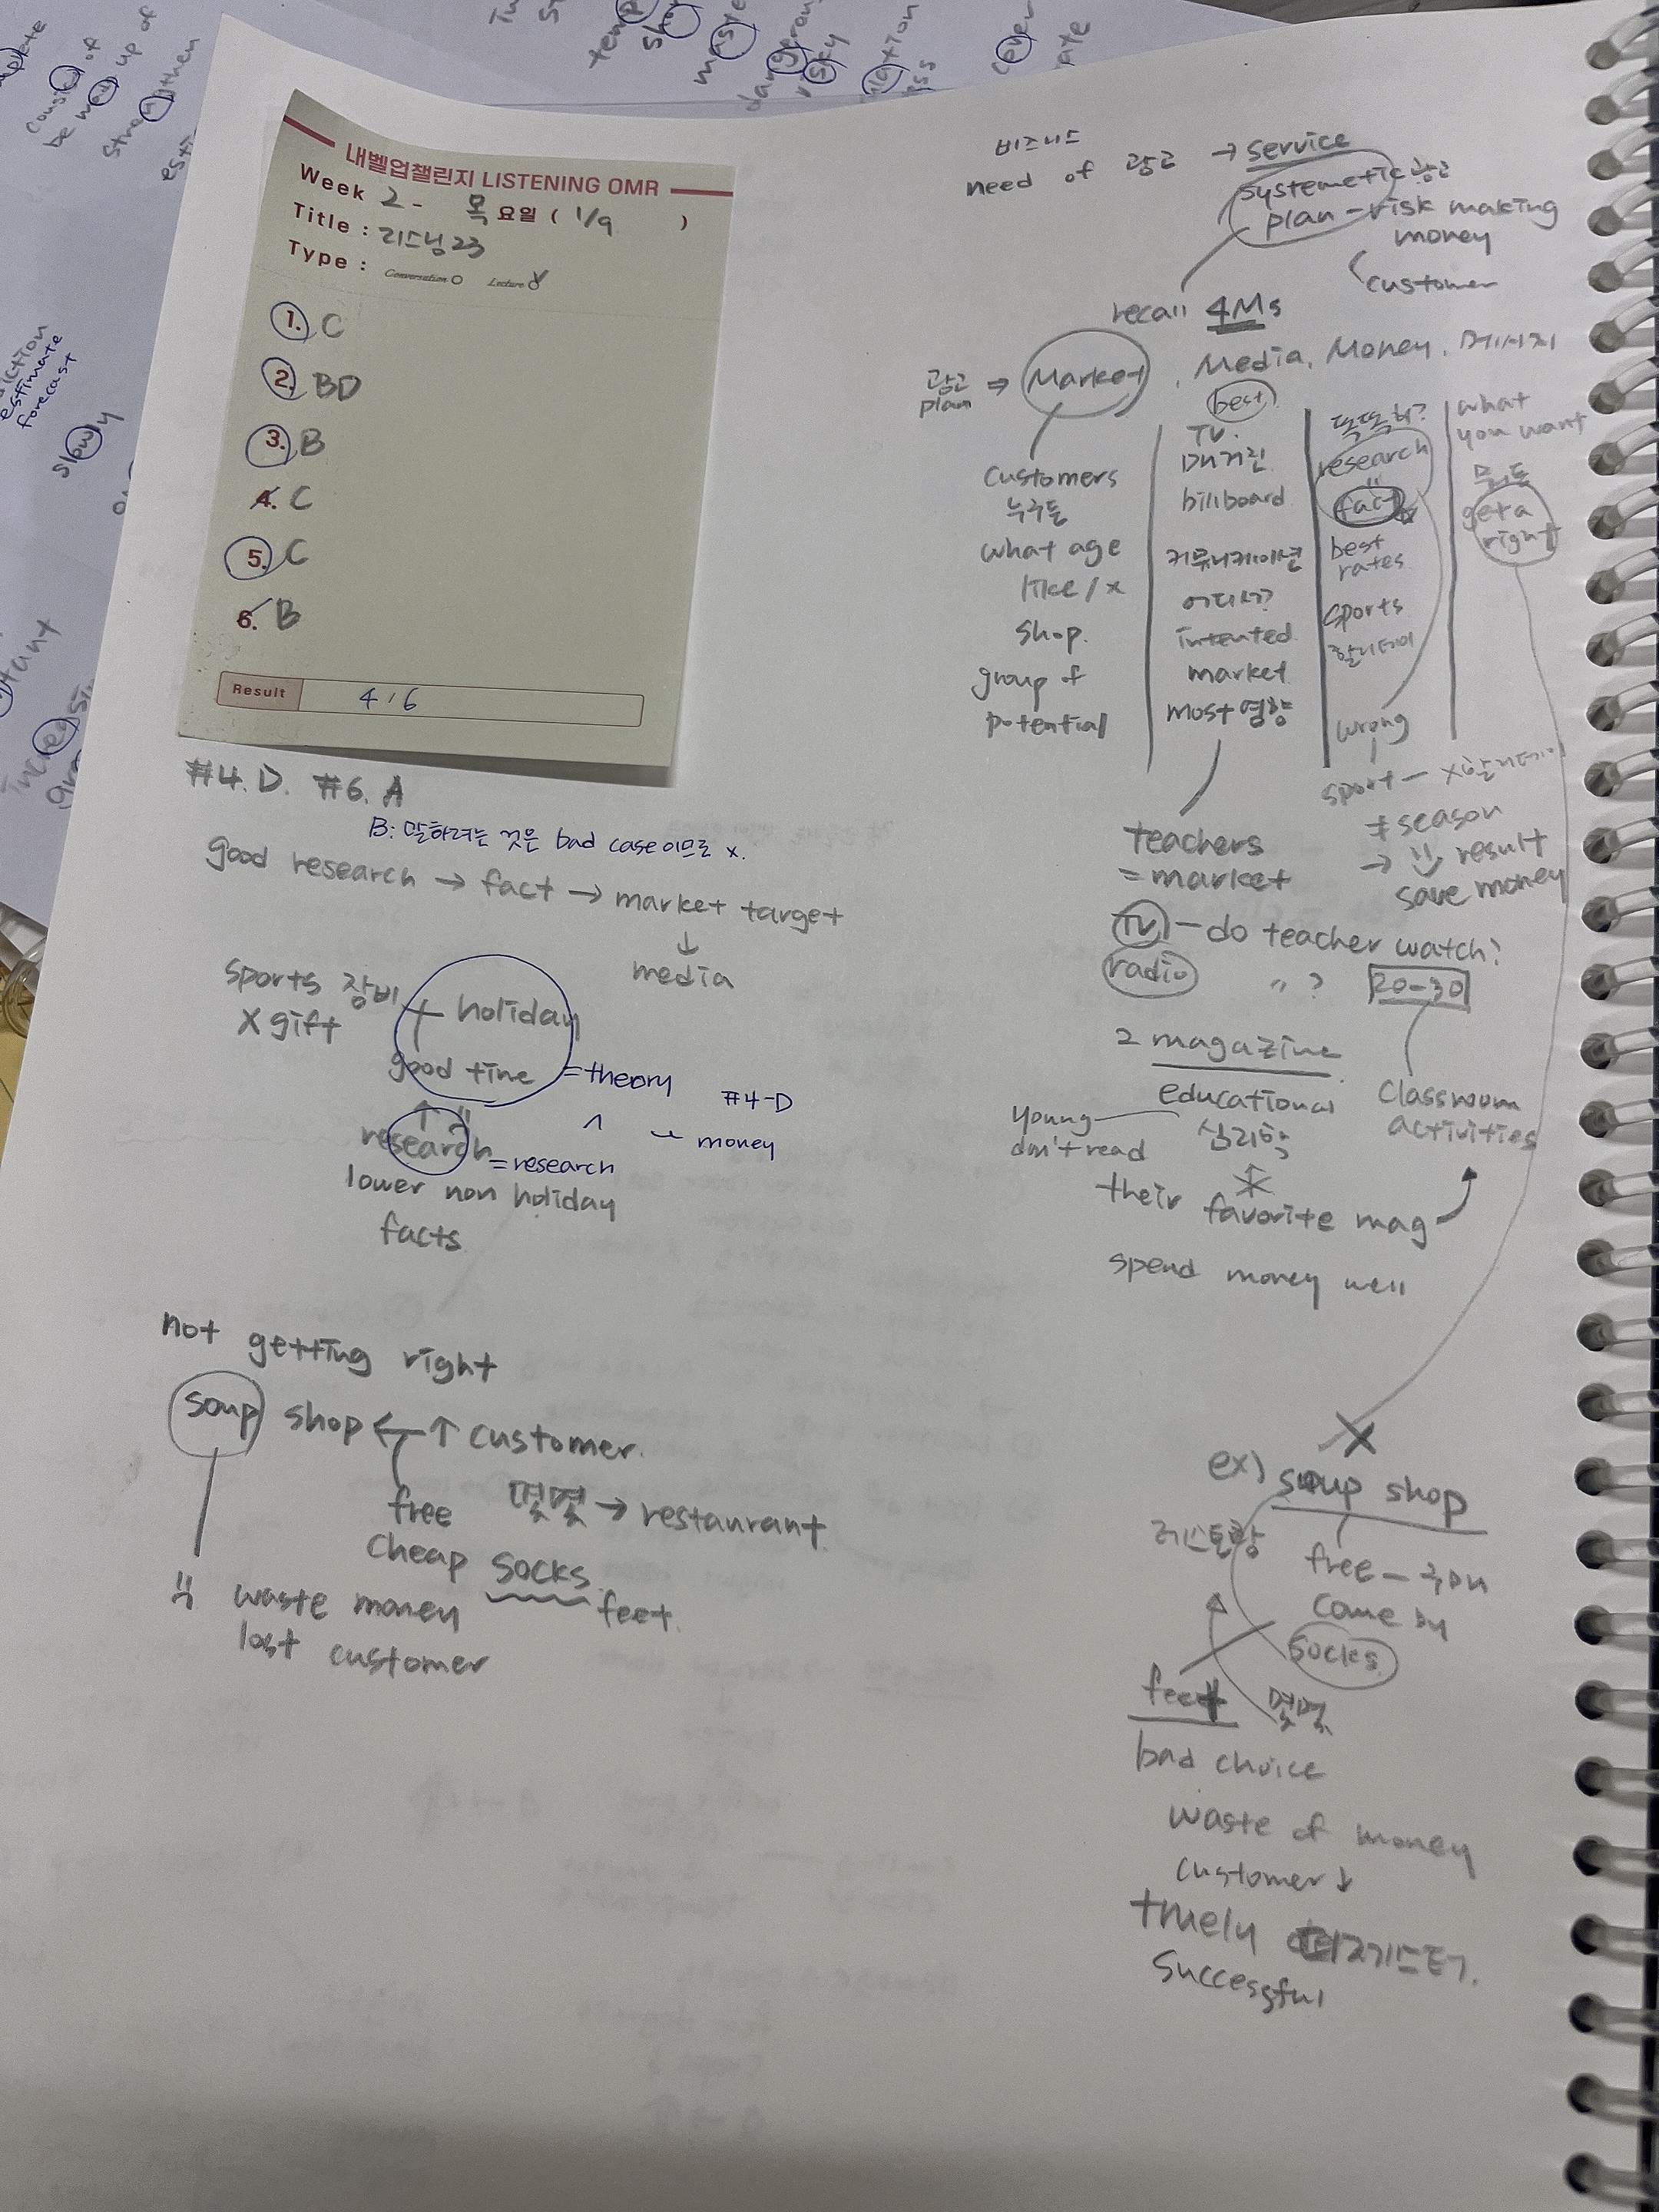 내벨업챌린지 LISTENING OMR
Week 2 - 목요일 ( 1/9 )
Title : 리스닝 23
Type : Conversation Lecture
1. C
2. BD
3. B
4. C
5. C
6. B
Result 4 / 6
#4. D. #6. A
B: 말하려는 것은 bad case이므로 x.
good research → fact → market target
↓
media
sports 장비 holiday
X gift
good time = theory
#4-D
research = research
money
lower non holiday
facts
not getting right
soup shop ← ↑ customer.
free 몇몇 → restaurant
cheap socks
feet
waste money
lost customer
비즈니스
need of 광고 → service
systemetic 광고
plan - risk making
money
customer
recall 4Ms
광고 plan ⇒ Market, Media, Money, 메시지
customers
누구들
what age
like / x
shop.
group of
potential
best
TV.
매거진
billboard
커뮤니케이션
어디서?
intented
market
most 영향
똑똑히?
research
fact
best
rates
sports
할리데이
wrong
sport - x할리데이
≠ season
→ result
save money
what
you want
get a
right
teachers
= market
TV - do teacher watch?
radio " ? 20-30
2 magazine
educational
심리학
young
don't read
classroom
activities
their favorite mag
spend money well
ex) soup shop
레스토랑
free -
come by
socks
feet 몇몇
bad choice
waste of money
customer ↓
successful
consist of
be made up of
strengthen
estimate
forecast
slowly